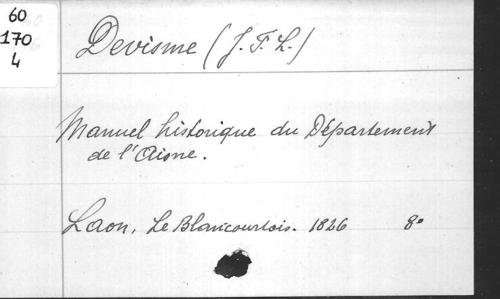 60
170
4
Devisme (J. F. L.)
Manuel historique du Département
de l'Aisne.
Laon, Le Blancourtois. 1826 8°